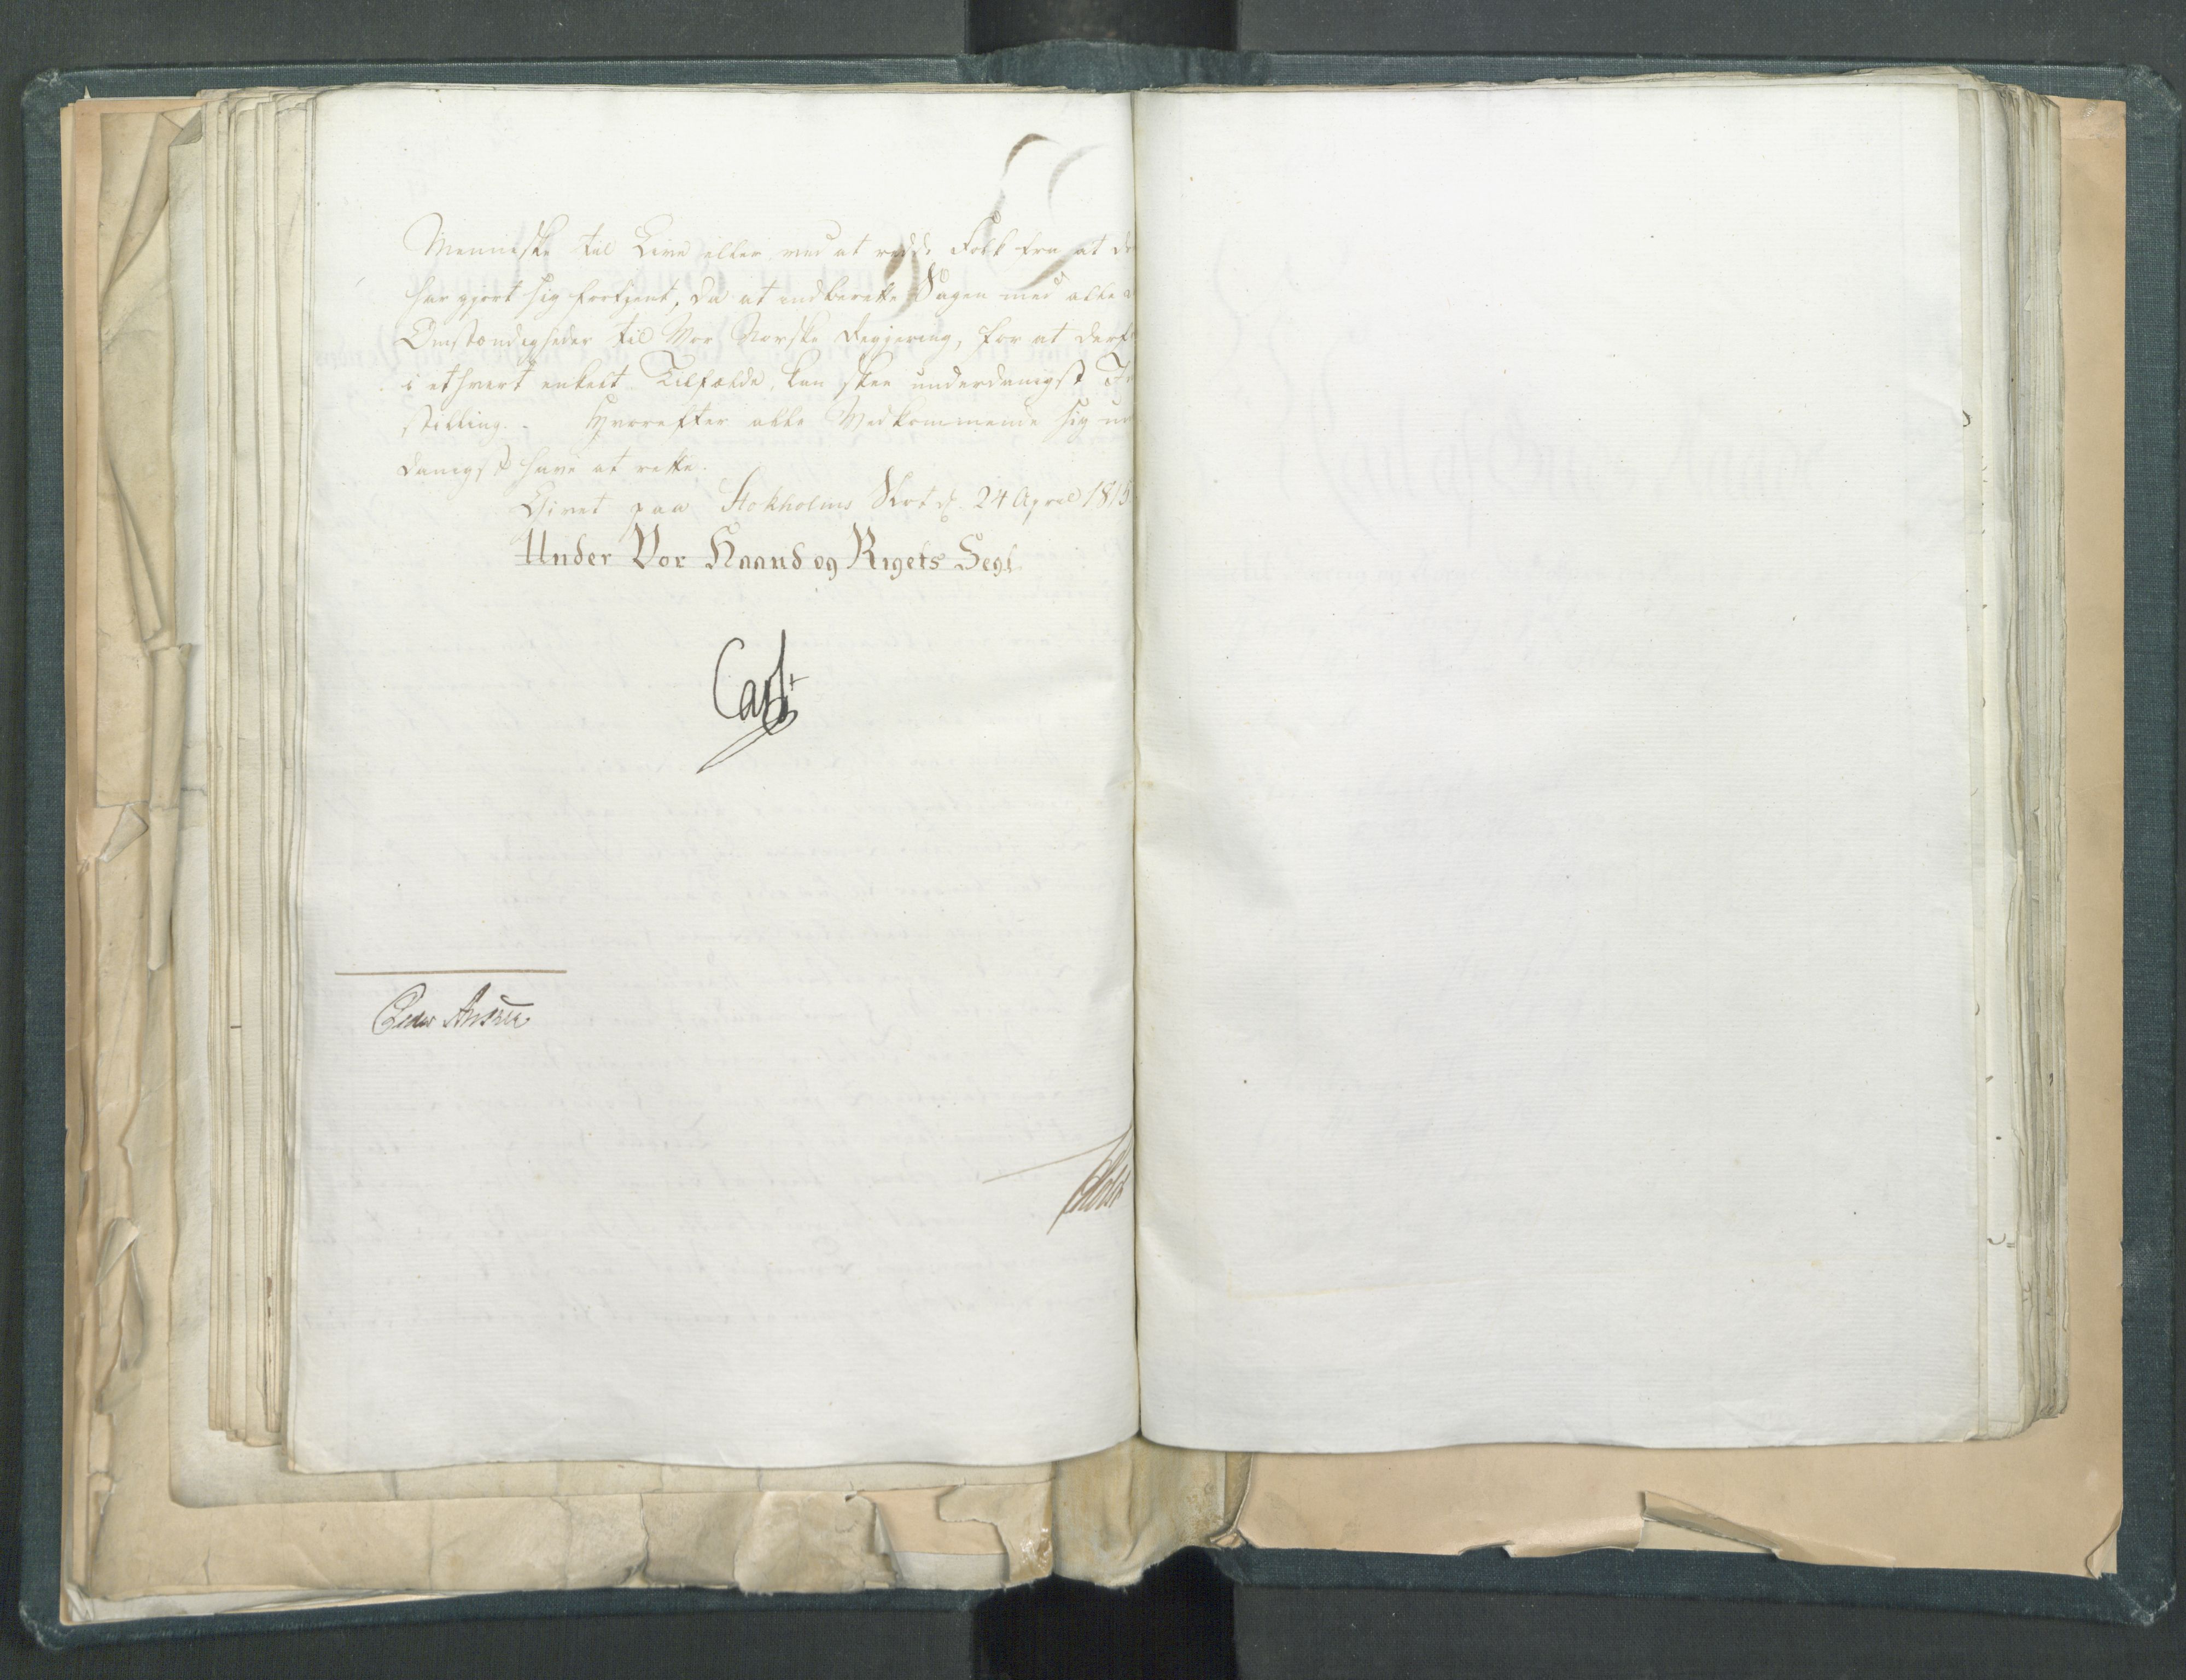 Menniske til Live eller ved at redde Folk fra at
har gjort sig fortjent, da at indberette Sagen med alle
Omstændigheder til Vor Norske Regjering, for at
i ethvert enkelt Tilfælde, kan skee underdanigst
stilling. - Hvorefter alle Vedkommende sig
danigst have at rette.
Givet paa Stokholms Slot d. 24 April 1815
Under Vor Haand og Rigets Segl.
Carl
Peder Anker
Holst